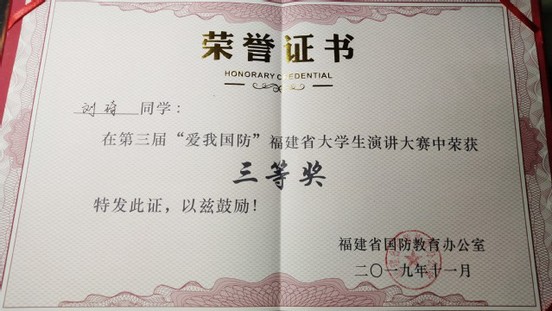 荣誉证书
HONORARY CREDENTIAL
刘 同学：
在第三届“爱我国防”福建省大学生演讲大赛中荣获
三等奖
特发此证，以兹鼓励！
福建省国防教育办公室
二〇一九年十一月